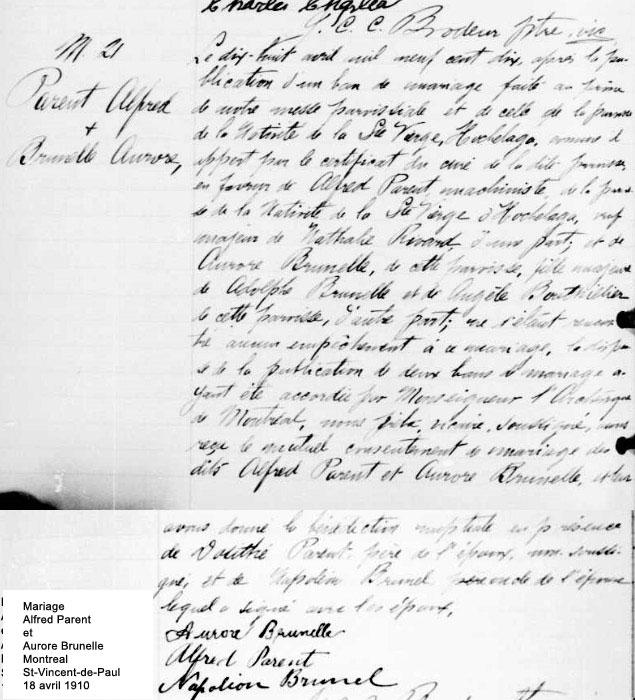 Charles Chyllca
J. C. C. Brodeur ptre. vic
M 21
Parent Alfred
+
Brunelle Aurore,
Le dix-huit avril mil neuf cent dix, après la pu-
blication d'un ban de mariage faite au prône
de notre messe paroissiale et de celle de la paroisse
de la Nativité de la Ste Vierge, Hochelaga, comme il
appert par le certificat du curé de la dite paroisse
en faveur de Alfred Parent, machiniste, de la parois-
se de la Nativité de la Ste Vierge d'Hochelaga, veuf
majeur de Nathalie Rivard, d'une part, et de
Aurore Brunelle, de cette paroisse, fille majeure
de Adolphe Brunelle et de Angèle Bouthillier
de cette paroisse, d'autre part; ne s'étant rencon-
tré aucun empêchement à ce mariage, la dispen-
se de la publication de deux bans de mariage a-
yant été accordée par Monseigneur l'Archevêque
de Montréal, nous ptre, vicaire, soussigné, avons
reçu le mutuel consentement de mariage des
dits Alfred Parent et Aurore Brunelle, et leur
avons donné la bénédiction nuptiale en présence
de Parent père de l'époux, non soussi-
gné; et de Napoléon Brunel oncle de l'épouse
lequel a signé avec les époux.
Aurore Brunelle
Alfred Parent
Napoléon Brunel
Mariage
Alfred Parent
et
Aurore Brunelle
Montreal
St-Vincent-de-Paul
18 avril 1910